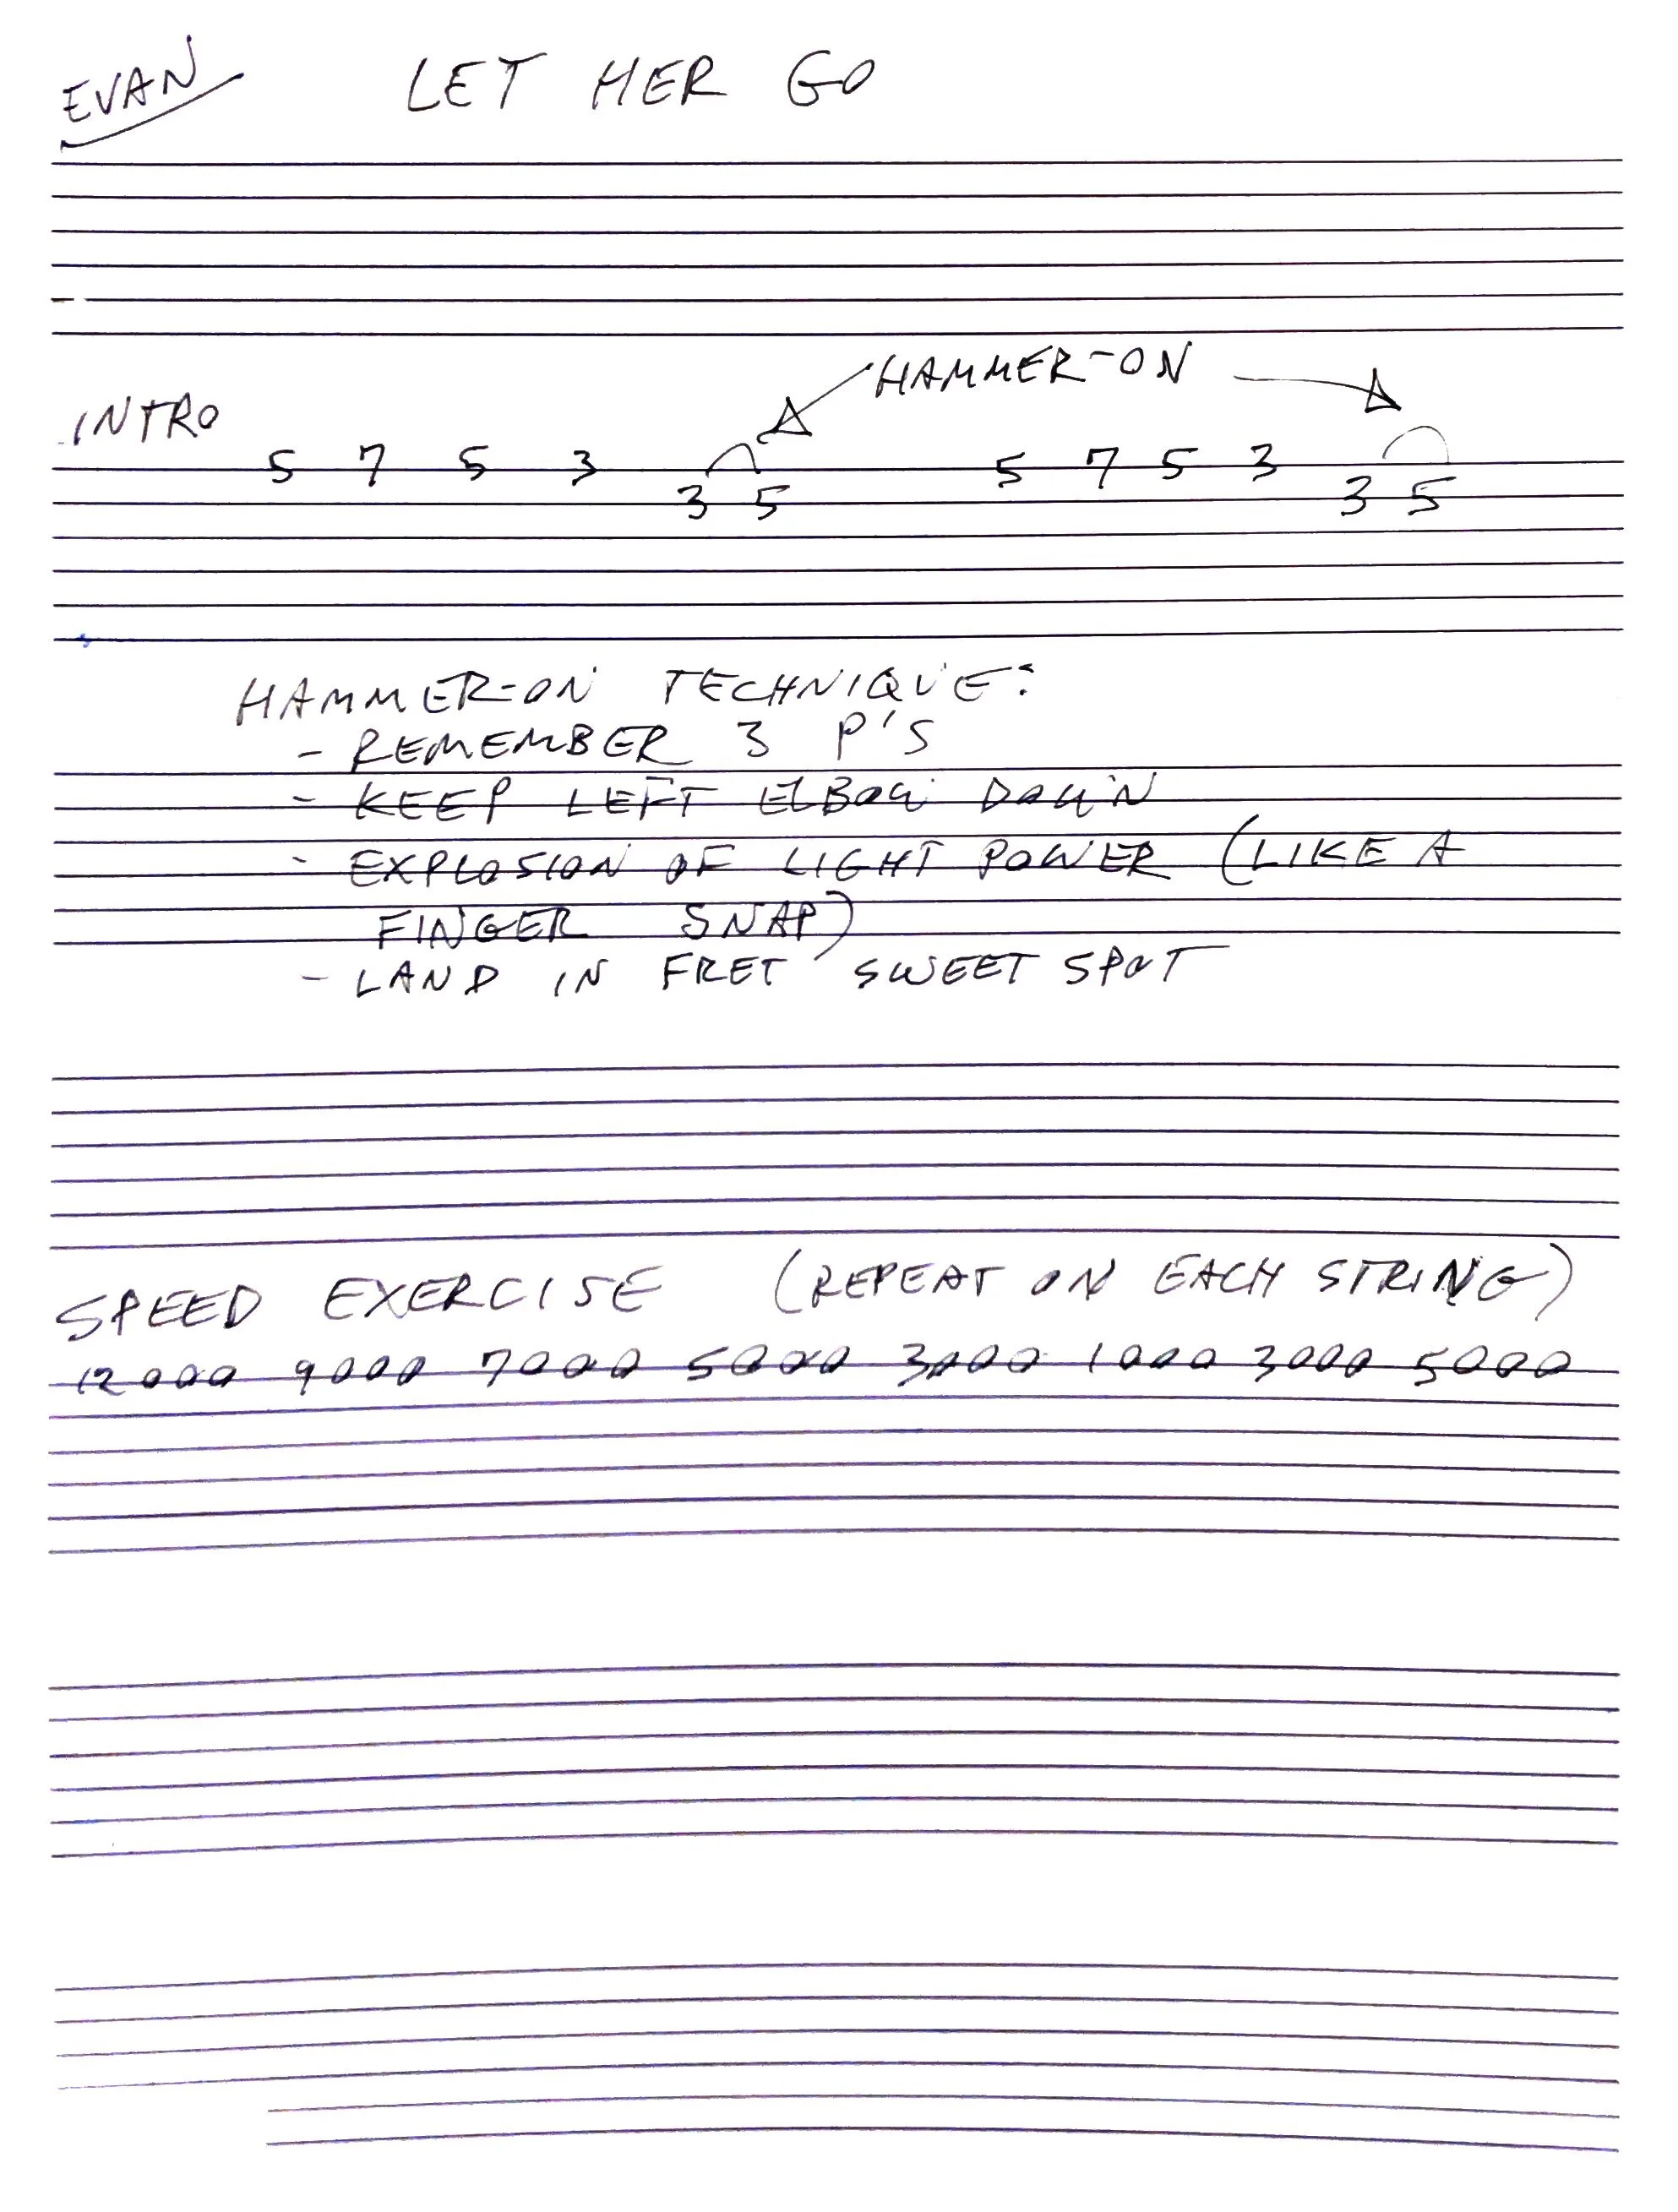 EVAN LET HER GO
HAMMER-ON
INTRO
5 7 5 3 5 7 5 3
3 5 3 5
HAMMER-ON TECHNIQUE:
- REMEMBER 3 P'S
- KEEP LEFT ELBOW DOWN
- EXPLOSION OF LIGHT POWER (LIKE A
FINGER SNAP)
- LAND IN FRET SWEET SPOT
SPEED EXERCISE (REPEAT ON EACH STRING)
12 000 9000 7000 5000 3000 1000 3000 5000